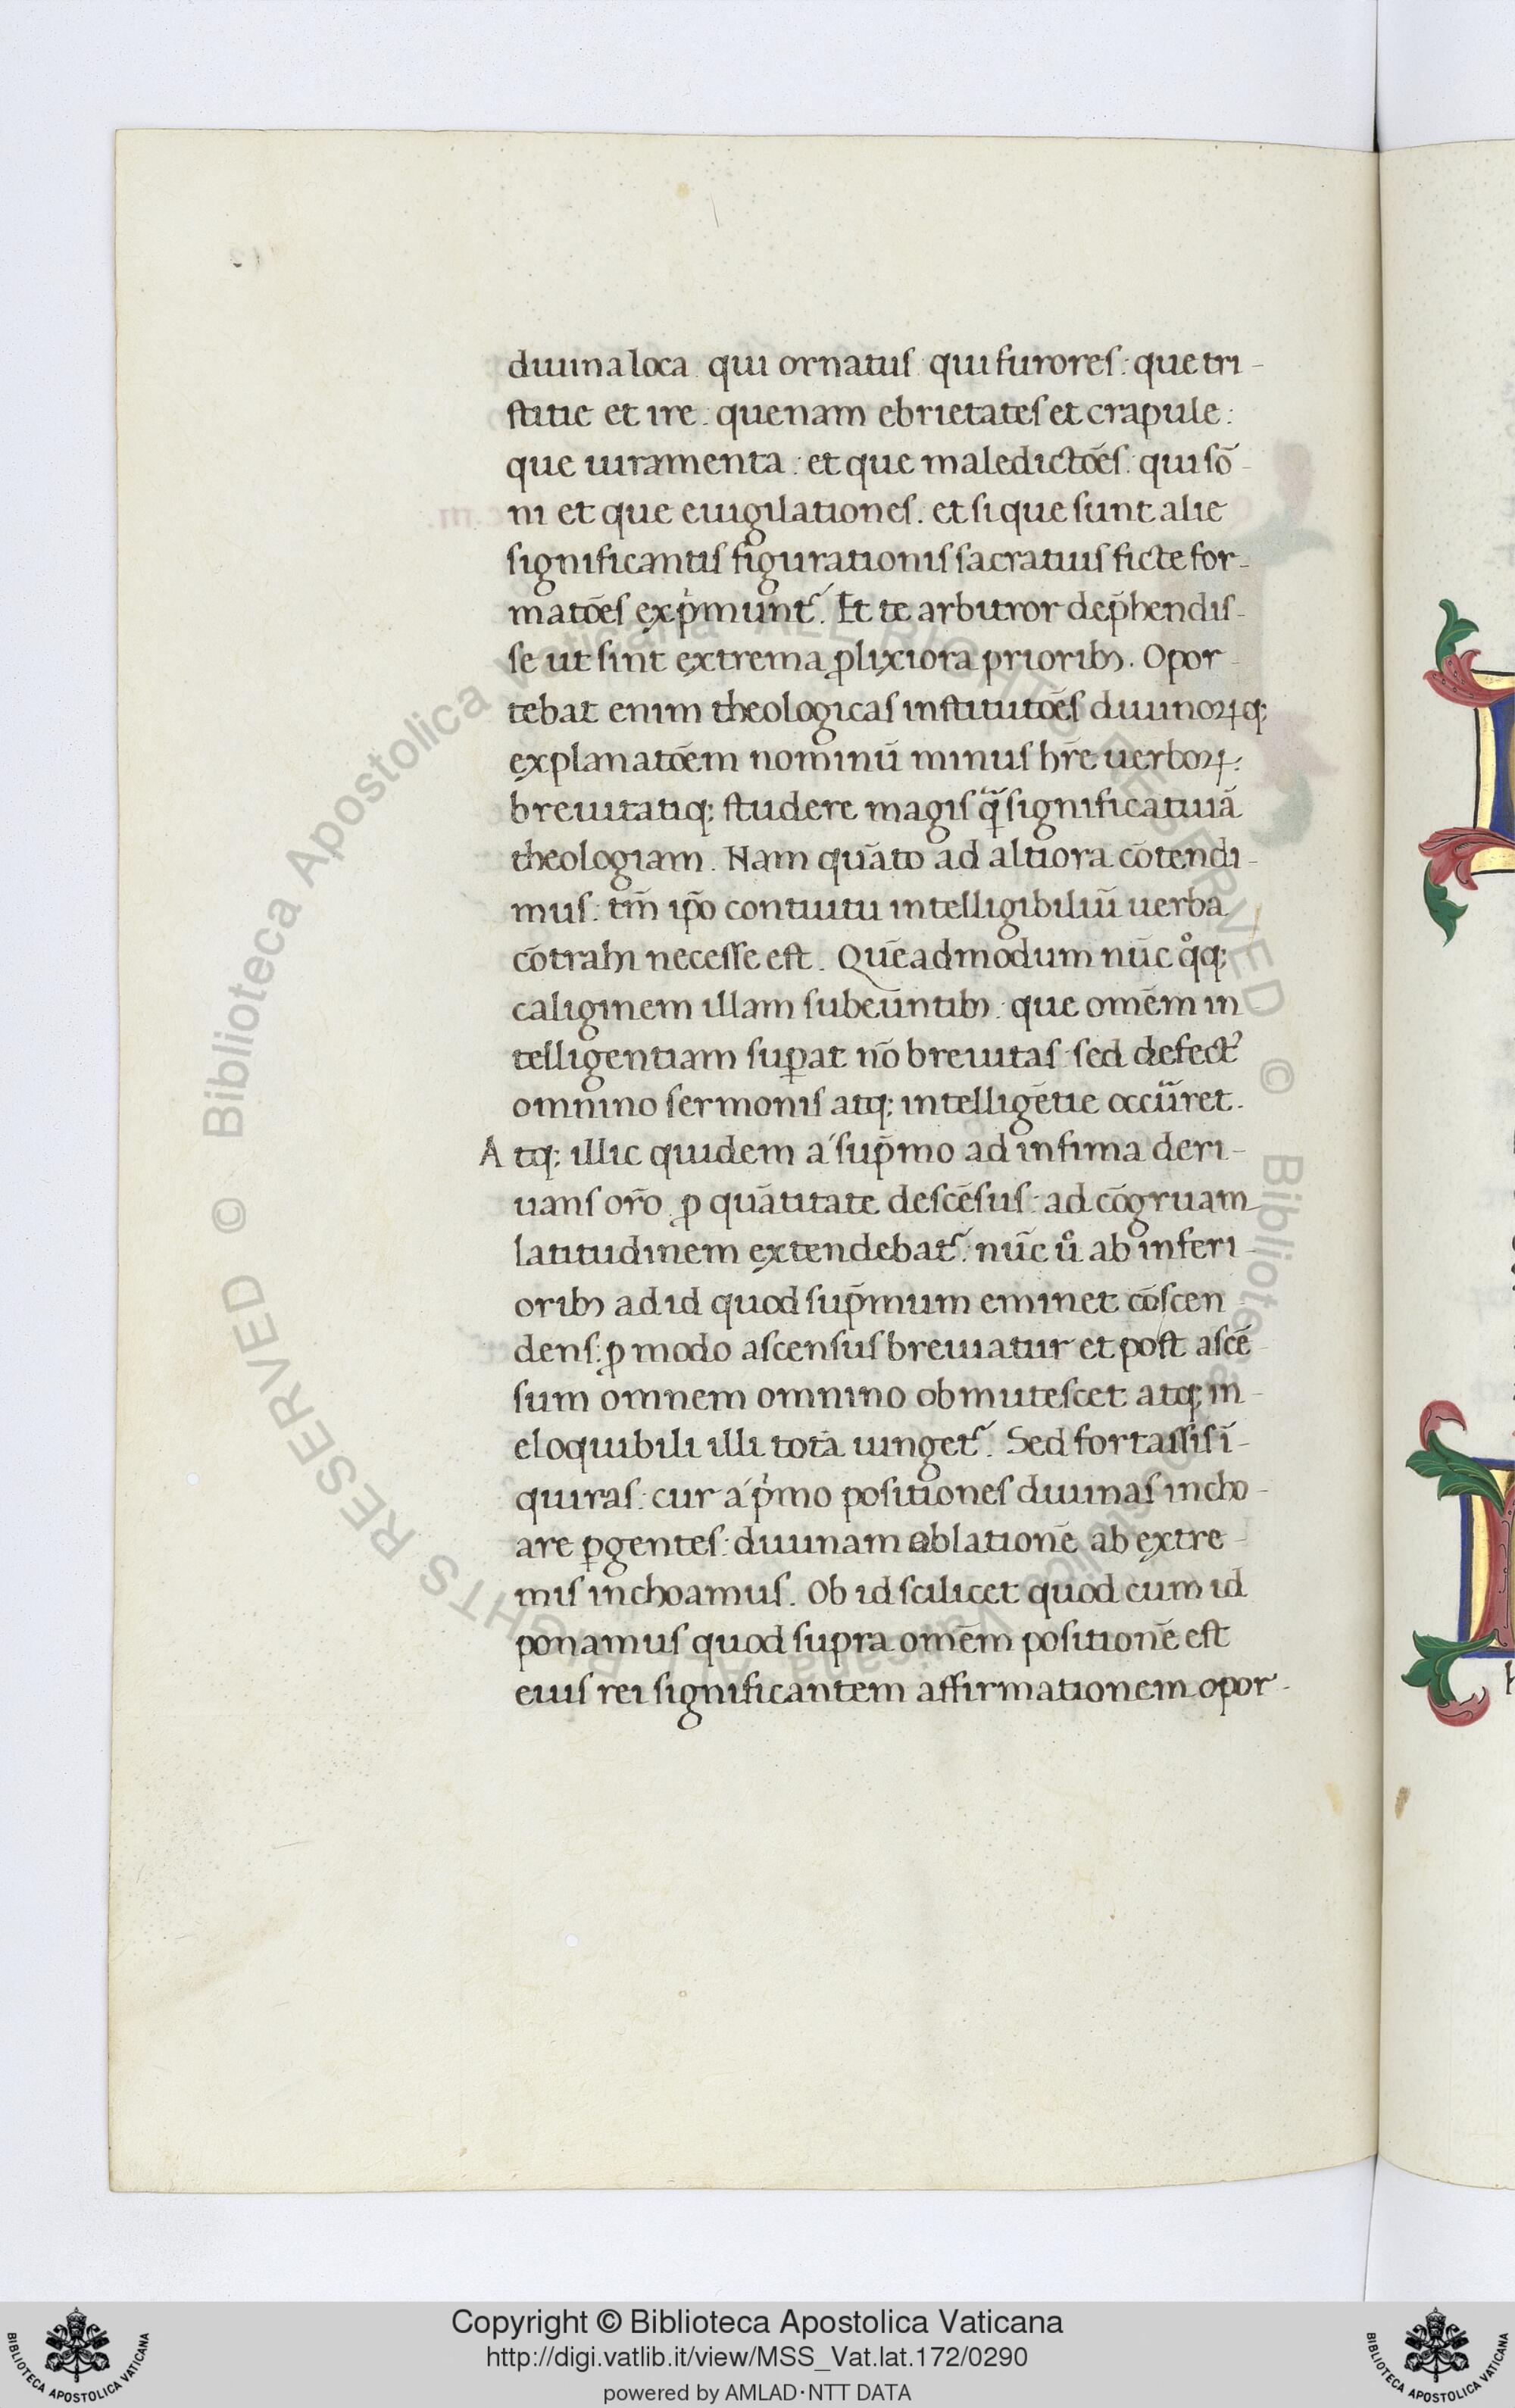 diuina loca qui ornatus qui furores: que tri-
stitie et ire: quenam ebrietates et crapule:
que iuramenta: et que maledictōes: qui sō-
ni et que euigilationes. et si que sunt alie
significantis figurationis sacratius ficte for-
matōes exp̍munt᷑. Et te arbitror dep̄hendis-
se ut sint extrema ꝓlixiora prioribꝫ. Opor-
tebat enim theologicas institutōes diuinoꝝqꝫ
explanatōem nominū minus hr̄e uerboꝝ:
breuitatiqꝫ studere magis q̄ᷓ significatiuā
theologiam. Nam quāto ad altiora cōtendi-
mus: tm̄ ip̄o contuitu intelligibiliū uerba
cōtrahi necesse est. Quēadmodum nūc qͦqꝫ
caliginem illam subeūntibꝫ: que omēm in
telligentiam suꝑat nō breuitas sed defectꝰ
omnino sermonis atqꝫ intelligētie occūret.
Atqꝫ illic quidem á sup̄mo ad infima deri-
uans or̄o ꝓ quātitate descēsus: ad cōgruam
latitudinem extendebat᷑: nūc uͦ ab inferi-
oribꝫ ad id quod sup̄mum eminet cōscen
dens: ꝓ modo ascensus breuiatur et post ascē-
sum omnem omnino obmutescet atqꝫ in-
eloquibili illi tota iunget᷑. Sed fortassis ī-
quiras: cur á p̍mo positiones diuinas incho-
are ꝑgentes: diuinam ablationē ab extre-
mis inchoamus. Ob id scilicet quod cum id
ponamus quod supra omēm positionē est
eius rei significantem affirmationem opor-
Copyright © Biblioteca Apostolica Vaticana
http://digi.vatlib.it/view/MSS_Vat.lat.172/0290
powered by AMLAD·NTT DATA